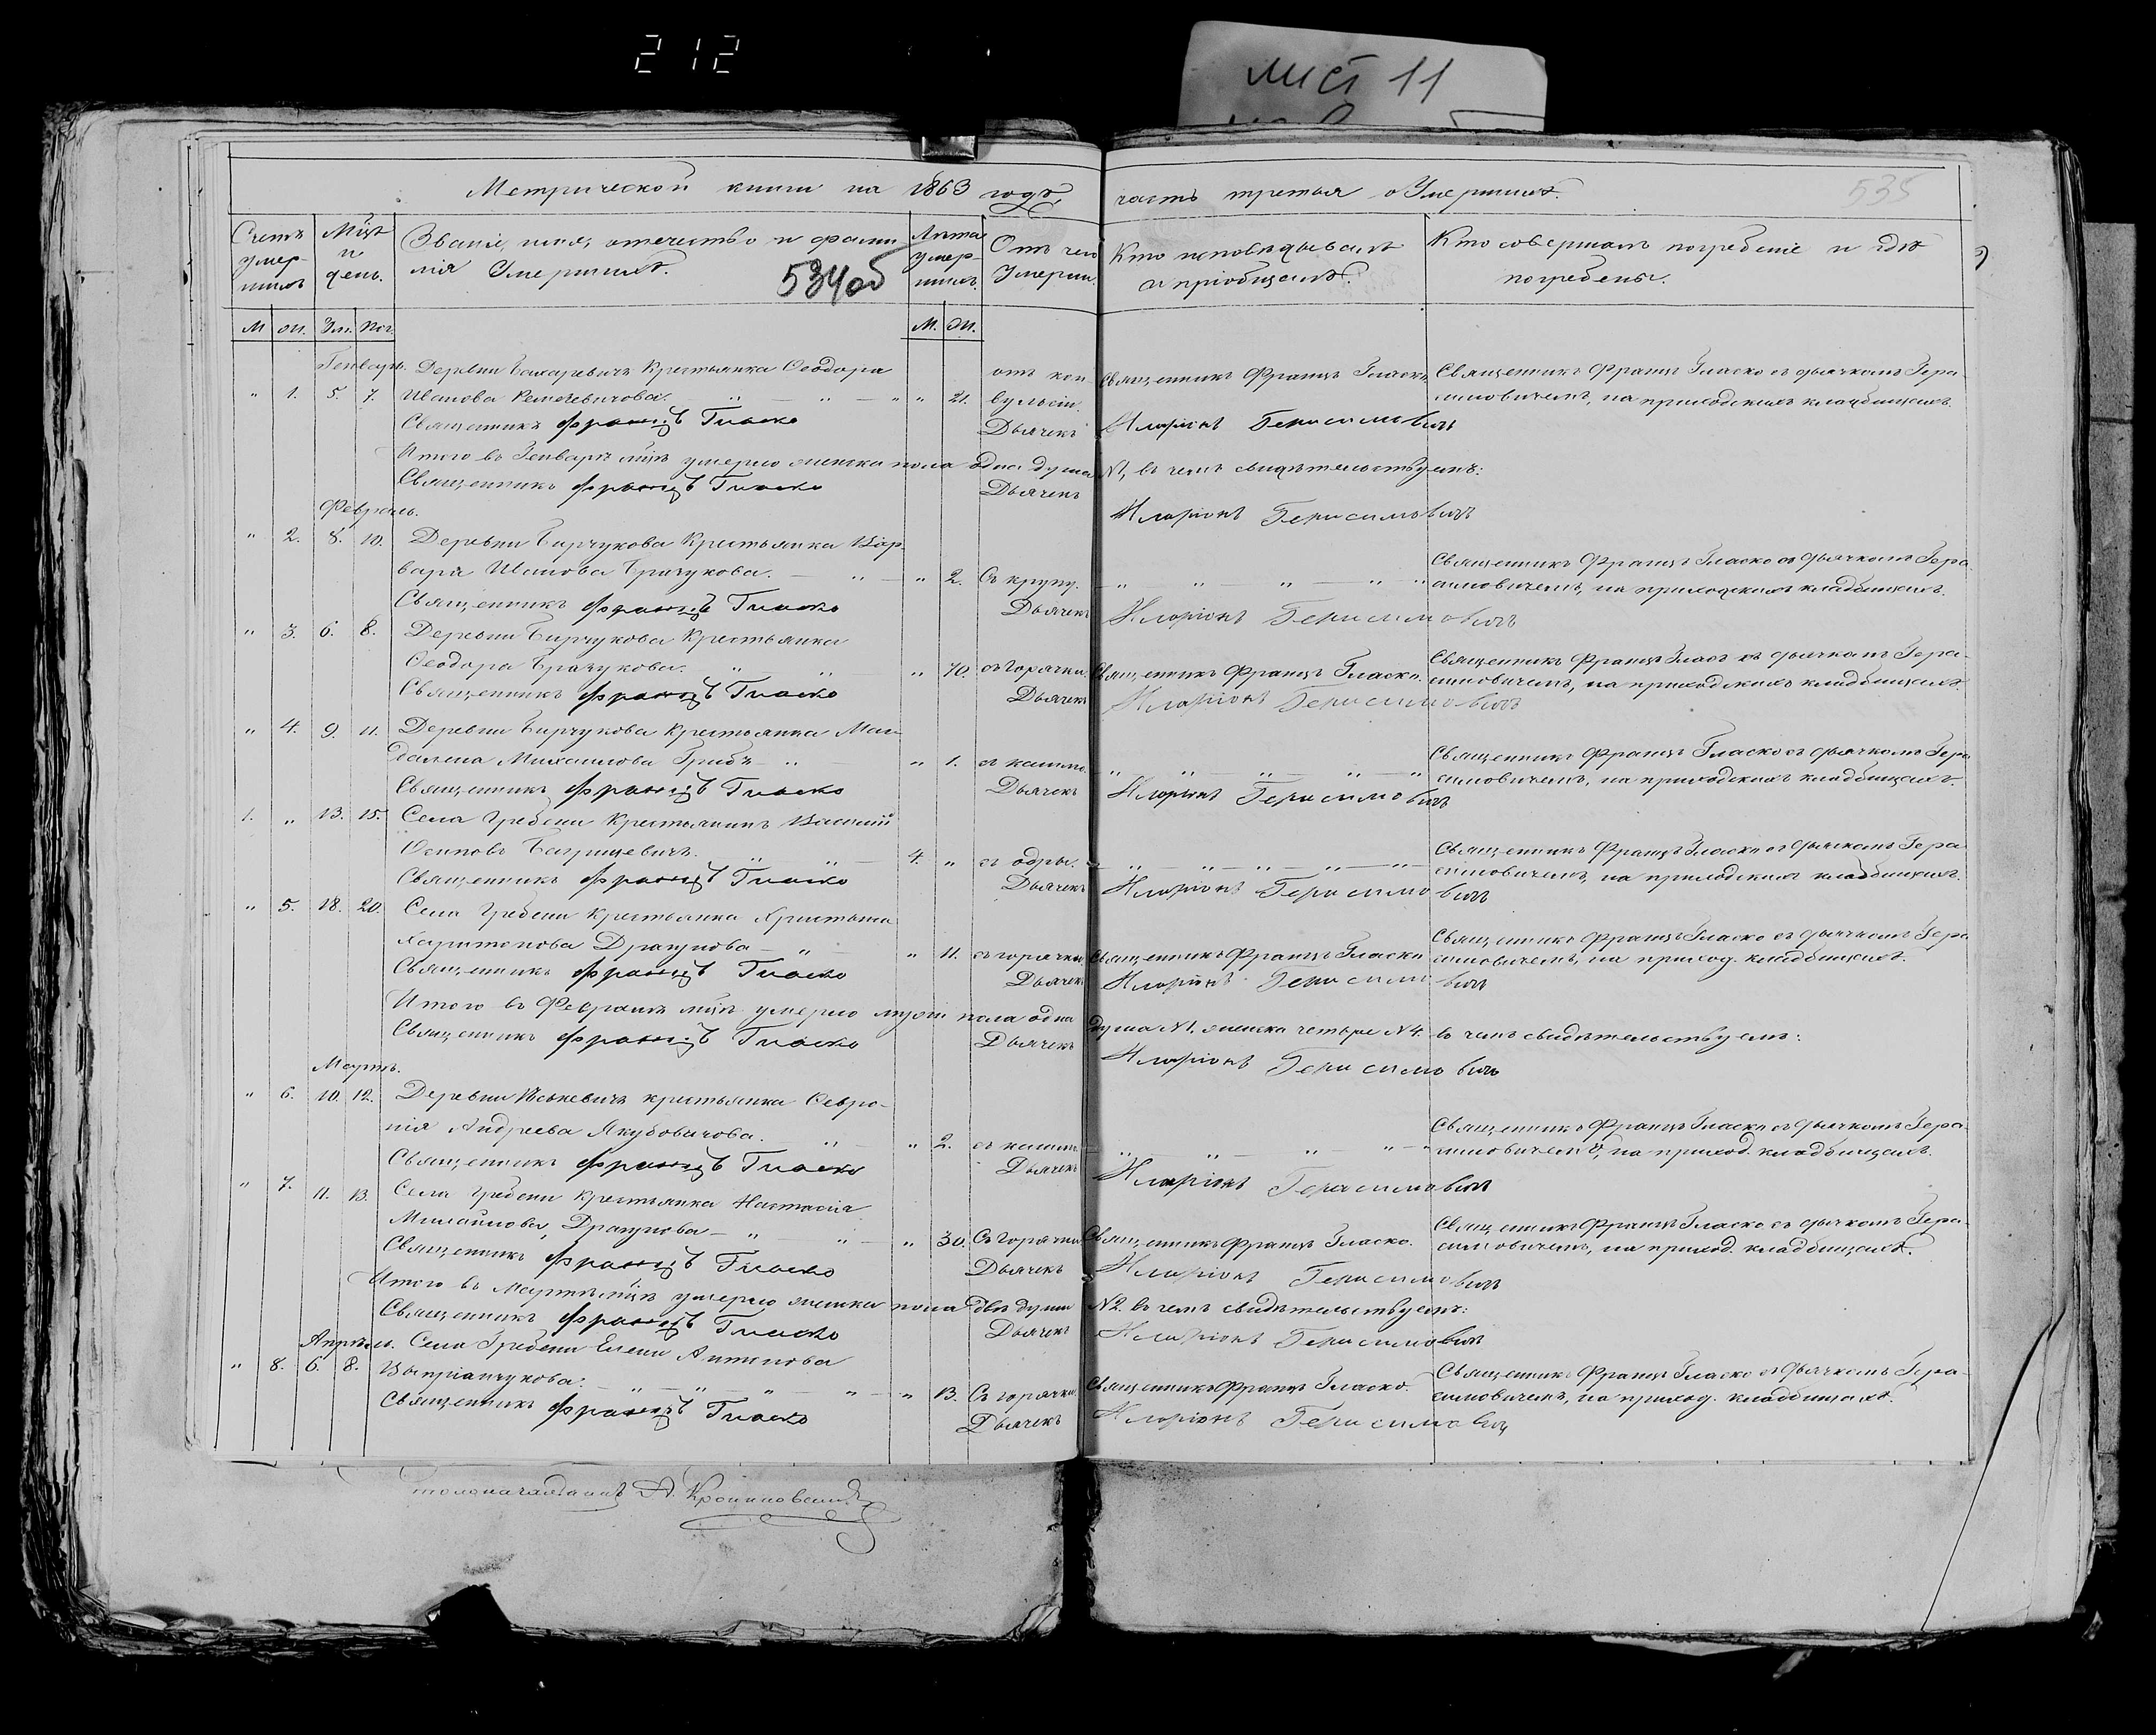 212
лист 11
Метрической книги на 1863 годъ, часть третья о Умершихъ.
535
Счетъ умер-шихъ
Мцъ и день.
Званіе, имя, отечество и фами-
лія Умершихъ.
534об
Лѣта умер-шихъ.
Отъ чего Умерли.
Кто исповѣдывалъ
и пріобщалъ.
Кто совершалъ погребеніе и гдѣ
погребены.
М. Ж. Ум. Пог. М. Ж.
Генварь. Деревни Крестьянка Ѳеодора отъ кон- Священникъ Францъ Гласко. Священникъ Францъ Гласко съ дьячкомъ Гера-
" 1. 5. 7. Иванова " 21. вульсіи. симовичемъ, на приходскихъ кладбищахъ.
Священникъ Францъ Гласко Дьячекъ Иларіонъ Герасимовичъ
Итого въ Генварѣ мцѣ умерло женска пола одна душа №1, въ чемъ свидѣтельствуемъ:
Священникъ Францъ Гласко Дьячекъ
Февраль. Иларіонъ Герасимовичъ
" 2. 8. 10. Деревни Бирчукова Крестьянка Вар-
вара Иванова " 2. Съ крупу. Священникъ Францъ Гласко съ дьячкомъ Гера-
симовичемъ, на приходскихъ кладбищахъ.
Священникъ Францъ Гласко Дьячекъ Иларіонъ Герасимовичъ
" 3. 6. 8. Деревни Бирчукова Крестьянка
Ѳеодора " 70. съ горячки. Священникъ Францъ Гласко. Священникъ Францъ дьячкомъ Гера-
симовичемъ, на приходскихъ кладбищахъ.
Священникъ Францъ Гласко Дьячекъ Иларіонъ Герасимовичъ
" 4. 9. 11. Деревни Бирчукова Крестьянка Маг-
далена Михаилова Грибъ " 1. съ кашлю. Священникъ Францъ Гласко съ дьячкомъ Гера-
симовичемъ, на приходскихъ кладбищахъ.
Священникъ Францъ Гласко Дьячекъ Иларіонъ Герасимовичъ
1. " 13. 15. Села Гребени Крестьянинъ Василій
Осиповъ 4. " съ одры. Священникъ Францъ Гласко съ дьячкомъ Гера-
симовичемъ, на приходскихъ кладбищахъ.
Священникъ Францъ Гласко Дьячекъ Иларіонъ Герасимовичъ
" 5. 18. 20. Села Гребени Крестьянка
Харитонова Драгунова " 11. съ горячки Священникъ Францъ Гласко Священникъ Францъ Гласко съ дьячкомъ Гера-
симовичемъ, на приход. кладбищахъ.
Священникъ Францъ Гласко Дьячекъ Иларіонъ Герасимовичъ
Итого въ Февралѣ мцѣ умерло муж. пола одна душа №1. женска четыре №4. въ чемъ свидѣтельствуемъ:
Священникъ Францъ Гласко Дьячекъ Иларіонъ Герасимовичъ
Мартъ.
" 6. 10. 12. Деревни крестьянка Ѳевро-
нія Андреева Якубовичова. " 2. съ кашлю. Священникъ Францъ Гласко съ дьячкомъ Гера-
симовичемъ, на приход. кладбищахъ.
Священникъ Францъ Гласко Дьячекъ Иларіонъ Герасимовичъ
" 7. 11. 13. Села Гребени крестьянка Настасія
Михайлова, Драгунова " 30. Съ горячки Священникъ Францъ Гласко. Священникъ Францъ Гласко съ дьячкомъ Гера-
симовичемъ, на приход. кладбищахъ.
Священникъ Францъ Гласко Дьячекъ Иларіонъ Герасимовичъ
Итого въ Мартѣ мцѣ умерло женска пола двѣ души №2. въ чемъ свидѣтельствуемъ:
Священникъ Францъ Гласко Дьячекъ Иларіонъ Герасимовичъ
Апрѣль. Села Гребени Елена Антонова
" 8. 6. 8. " 13. Съ горячки. Священникъ Францъ Гласко. Священникъ Францъ Гласко съ дьячкомъ Гера-
симовичемъ, на приход. кладбищахъ.
Священникъ Францъ Гласко Дьячекъ Иларіонъ Герасимовичъ
толоначальникъ А.